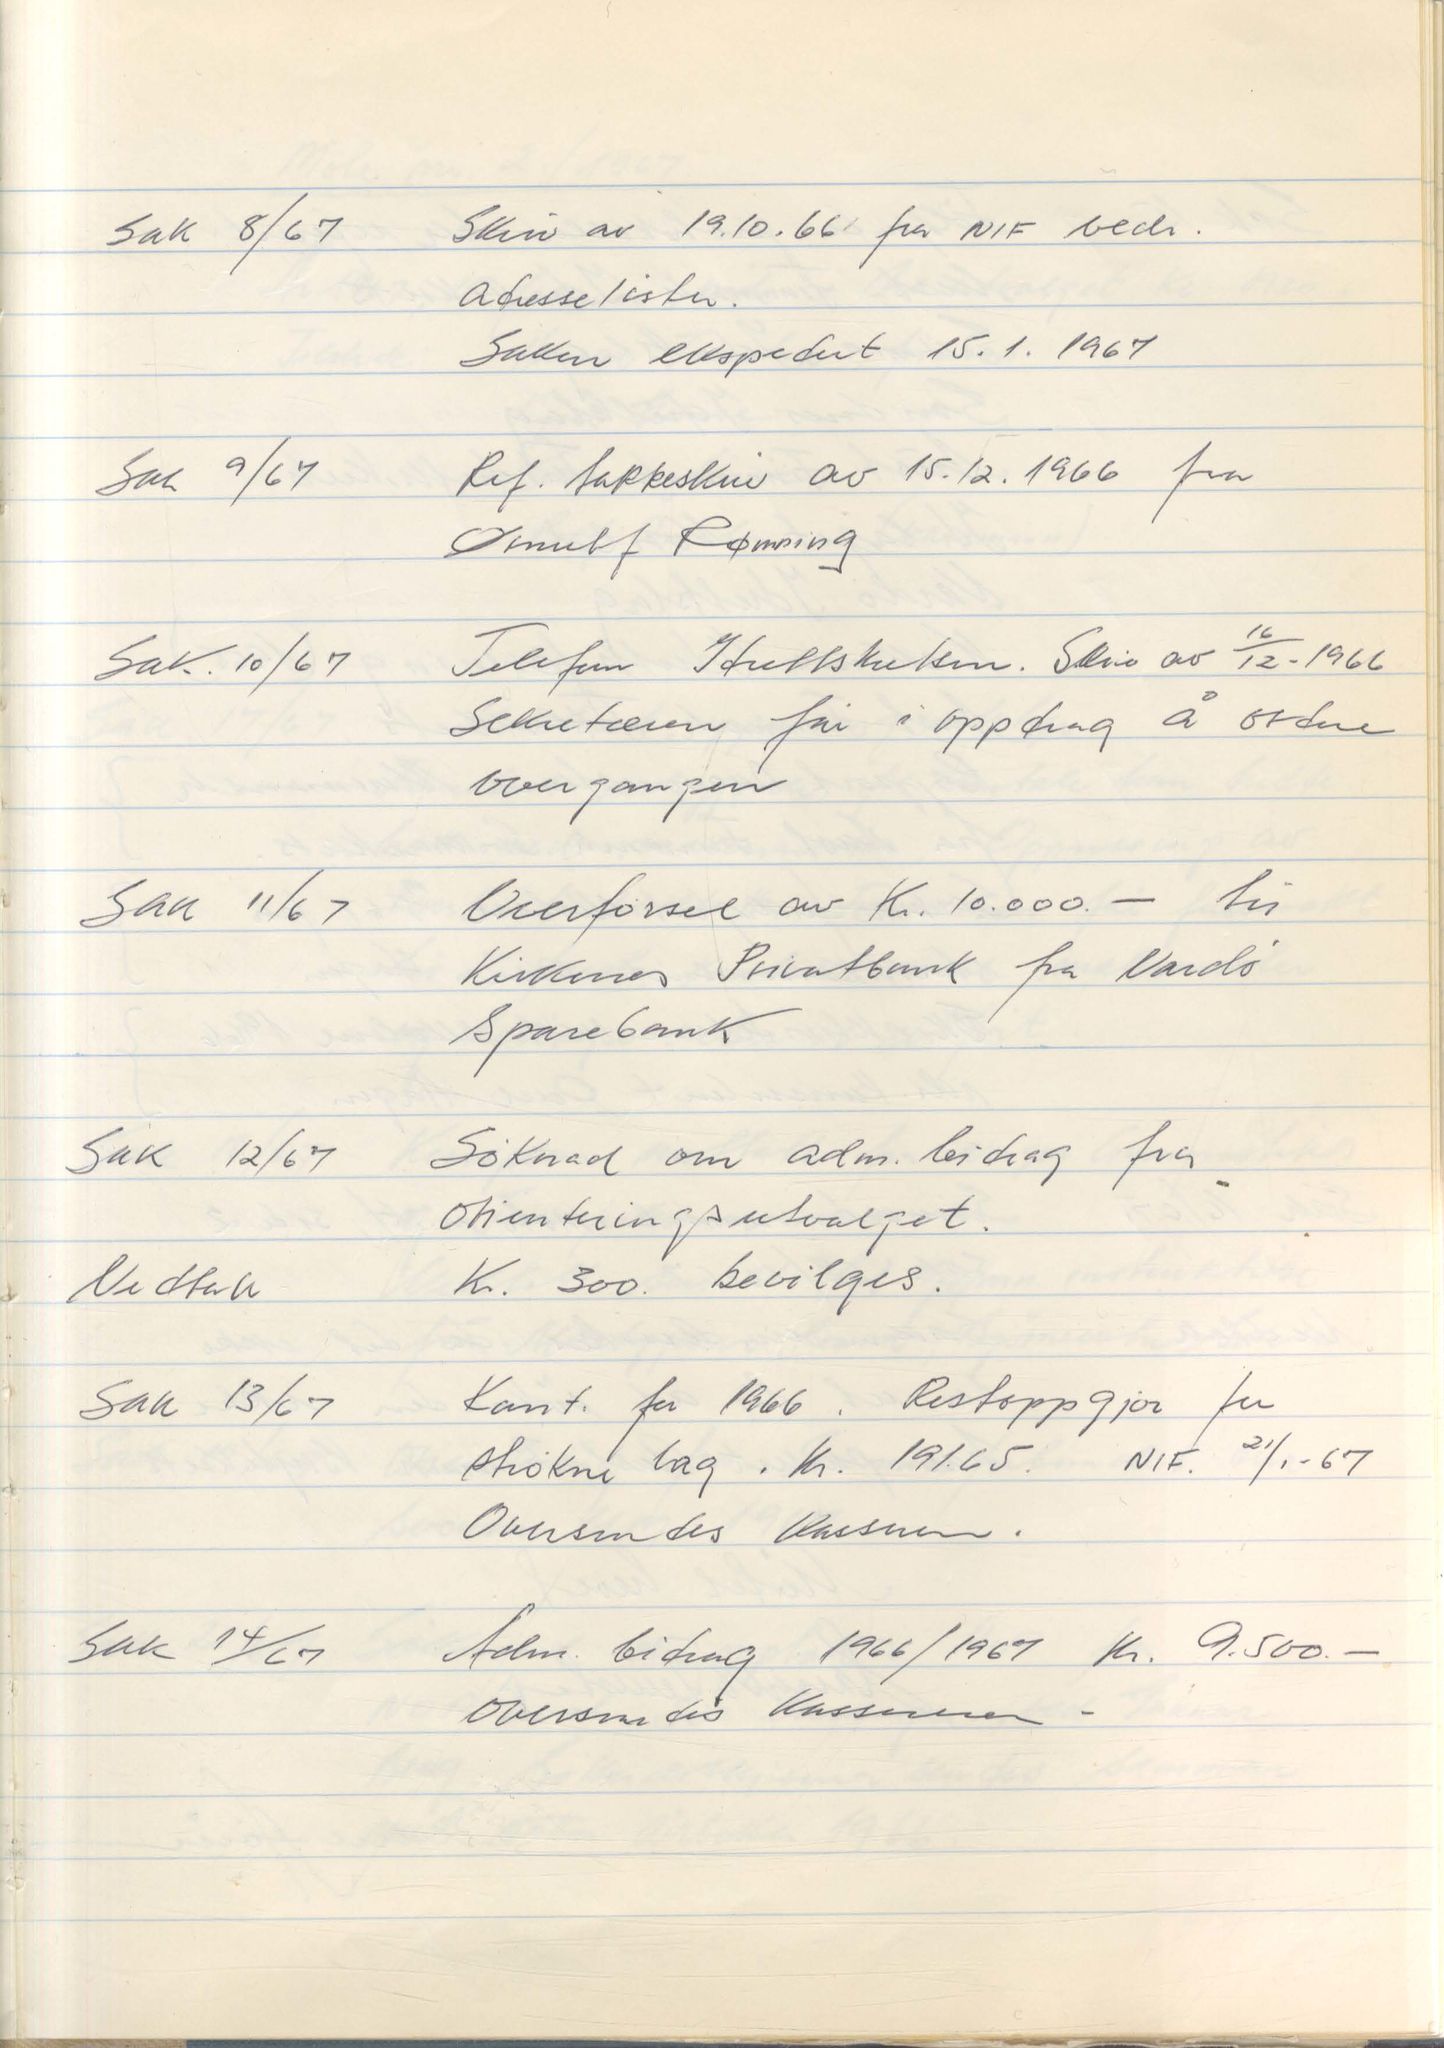 Sak 8/67 Skriv av 19.10.66 fra NIF vedr.
adresselister.
Saken ekspedert 15.1.1967
Sak 9/67 Ref. takkeskriv av 15.12.1966 fra
Ørnulf Rømning
Sak. 10/67 Telefon Idrettskretsen. Skriv av 16/12-1966
Sekretæren får i oppdrag å ordne
overgangen
Sak 11/67 Overførsel av Kr. 10.000.— til
Kirkenes Privatbank fra Vardö
Sparebank
Sak 12/67 Søknad om adm. bidrag fra
orienteringsutvalget.
Vedtak Kr. 300. bevilges.
Sak 13/67 Kont. for 1966. Restoppgjør for
strøkne lag. Kr. 191.65. NIF. 21/1-67
Oversendes Kasseren.
Sak 14/67 Adm. bidrag 1966/1967 Kr. 9.500.—
oversendes Kassereren -